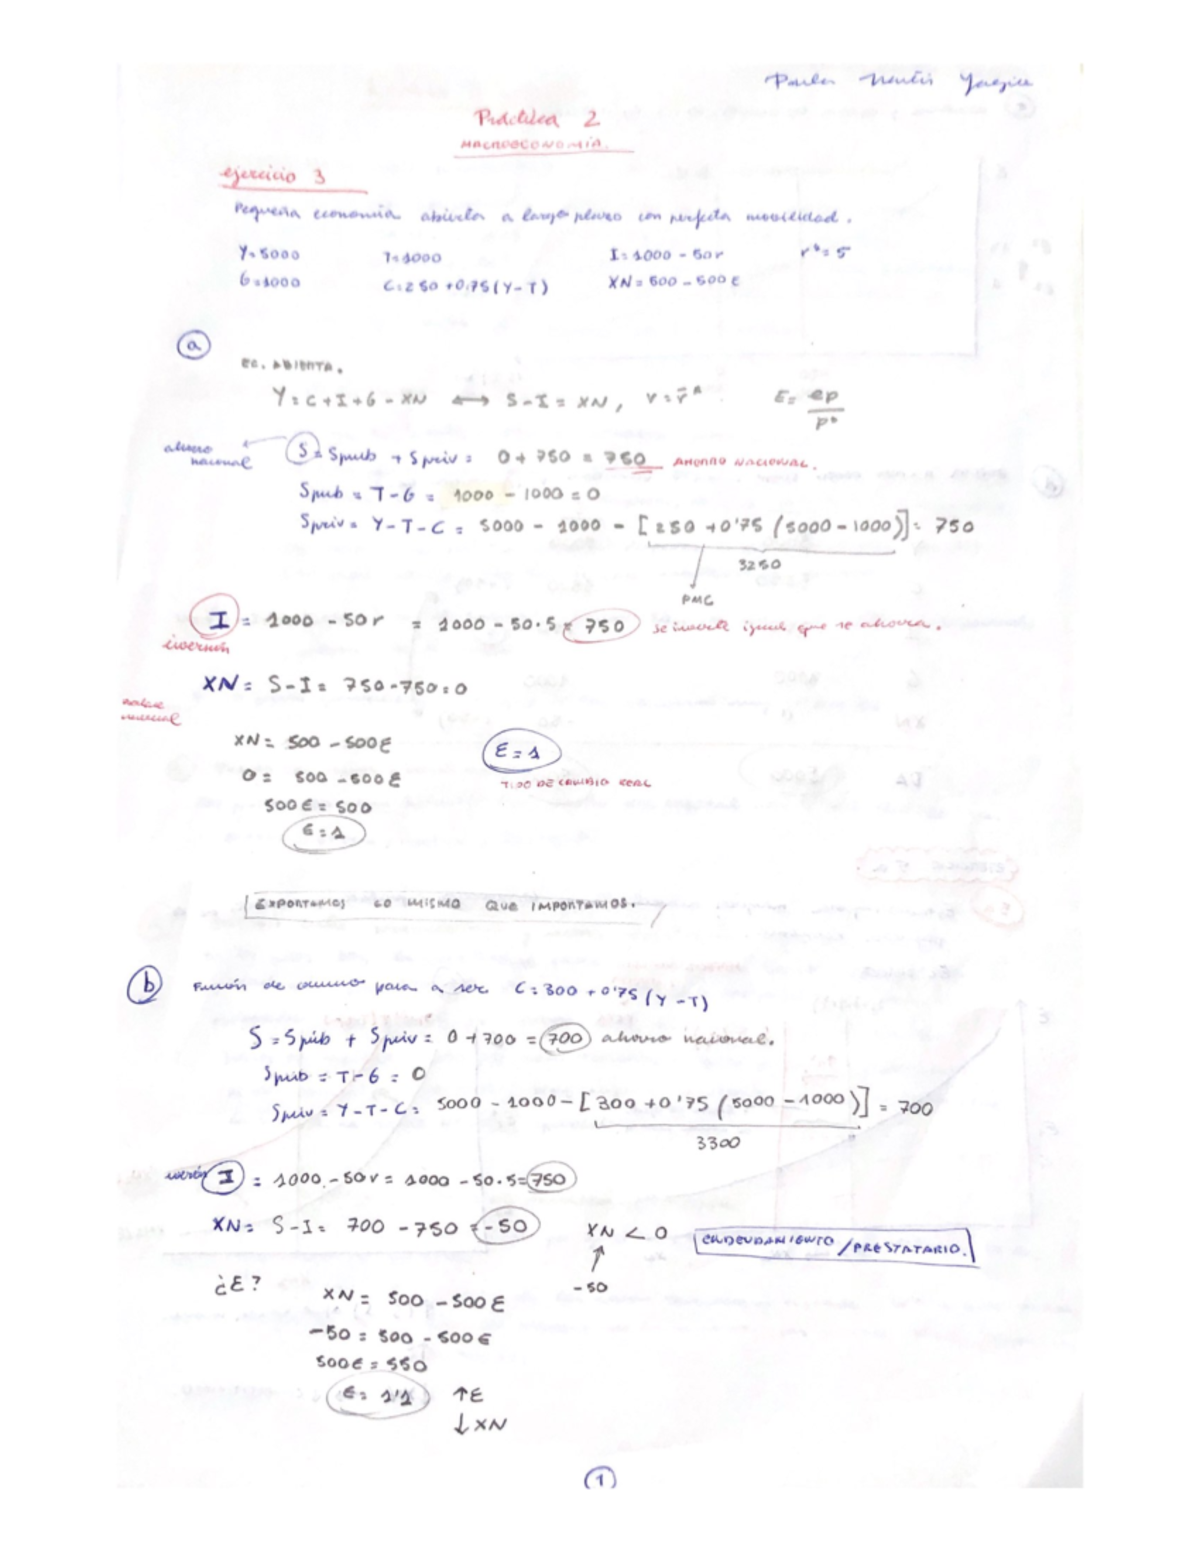 Práctica 2
MACROECONOMÍA.
ejercicio 3
Pequeña economía abierta a largo plazo con perfecta movilidad.
Y=5000 T=1000 I=1000-50r r*=5
G=1000 C=250+0,75(Y-T) XN=500-500Ɛ
a
EC. ABIERTA.
Y=C+I+G-XN ⟷ S-I=XN, r=r̄* Ɛ= ep/p*
ahorro nacional S=Spub+Spriv= 0+750=750 AHORRO NACIONAL.
Spub=T-G= 1000-1000=0
Spriv=Y-T-C= 5000-1000-[250+0'75(5000-1000)]=750
3250
PMC
I=1000-50r = 1000-50·5=750 se invierte igual que se ahorra.
inversión
XN= S-I= 750-750=0
XN= 500-500Ɛ Ɛ=1
0= 500-500Ɛ TIPO DE CAMBIO REAL
500Ɛ=500
Ɛ=1
EXPORTAMOS LO MISMO QUE IMPORTAMOS.
b Función de consumo pasa a ser C=300+0'75(Y-T)
S=Spúb+Spriv= 0+700=700 ahorro nacional.
Spub=T-G=0
Spriv=Y-T-C= 5000-1000-[300+0'75(5000-1000)]=700
3300
I = 1000-50r= 1000-50·5=750
XN= S-I= 700-750=-50 XN<0 ENDEUDAMIENTO/PRESTATARIO.
↑
-50
¿Ɛ? XN= 500-500Ɛ
-50=500-500Ɛ
500Ɛ=550
Ɛ=1'1 ↑Ɛ
↓XN
1